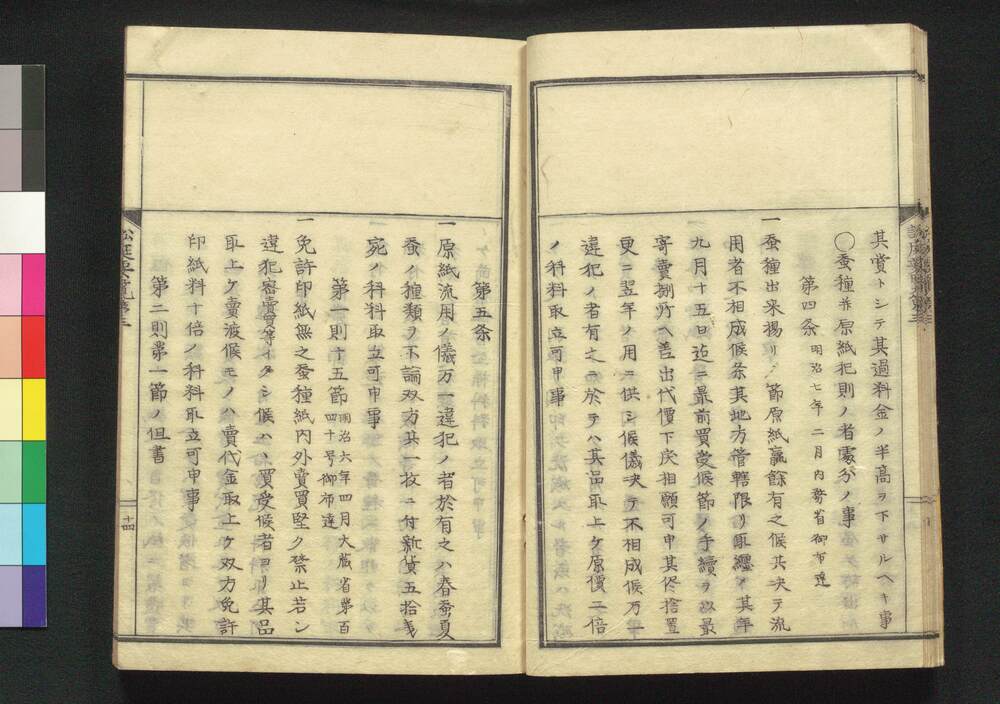 其賞トシテ其過料金ノ半高ヲ下サルヘキ事
〇蚕種并原紙犯則ノ者處分ノ事
第四条 明治七年二月内務省御布達
一蚕種出来揚リノ節原紙贏餘有之候共决テ流
用者不相成候条其地方管轄限リ取纒メ其年
九月十五日迄ニ最前買受候節ノ手續ヲ以最
寄賣捌所ヘ差出代價下戻相願可申其侭捨置
更ニ翌年ノ用ニ供シ候儀决テ不相成候万一
違犯ノ者有之ニ於テハ其品取上ケ原價二倍
ノ科料取立可申事
第五条
一原紙流用ノ儀万一違犯ノ者於有之ハ春蚕夏
蚕ノ種類ヲ不論双方共一枚ニ付新貨五拾戔
宛ノ科料取立可申事
第一則十五節 明治六年四月大蔵省第百
四十号御布達
一免許印紙無之蚕種紙内外賣買堅ク禁止若シ
違犯密賣買等イタシ候ハヽ買受候者ヨリ其品
取上ケ賣渡候モノハ賣代金取上ケ双方免許
印紙料十倍ノ科料取立可申事
第二則第一節ノ但書
訟庭要覽第三
十四